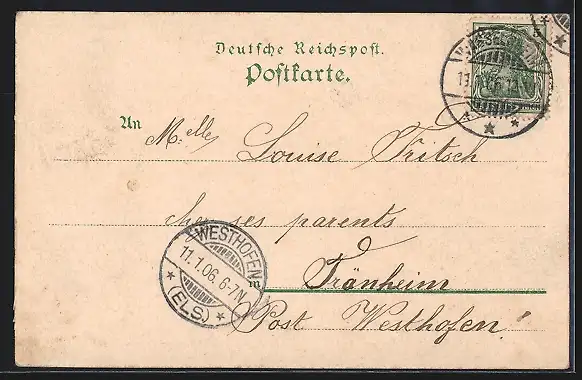 Deutsche Reichspost.
Postkarte.
An Melle Louise Fritsch
chez ses parents
in Fränheim
Post Westhofen!
WESTHOFEN
11.1.06. 6-7N.
(ELS)